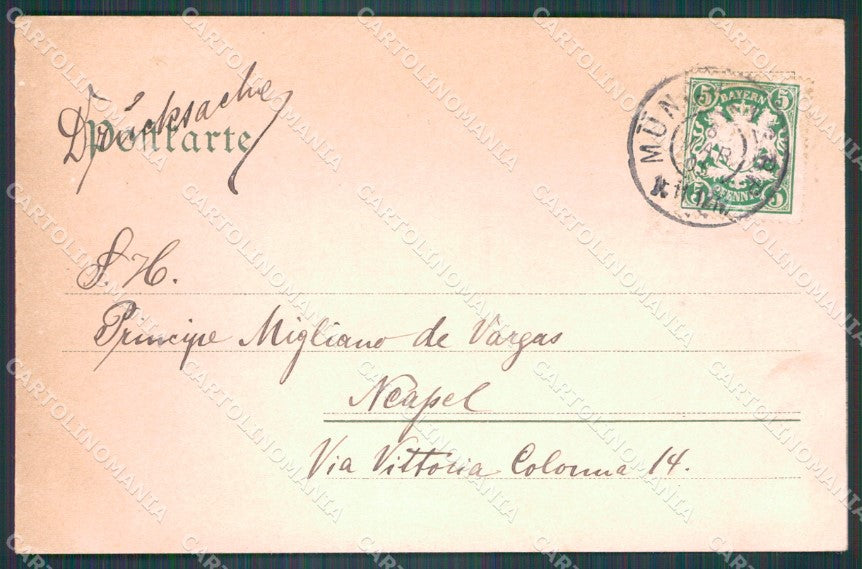 Drucksache
Postkarte
5 BAYERN 5
5 PFENNIG 5
MÜN
S. H.
Principe Migliano de Vargas
Neapel
Via Vittoria Colonna 14.
CARTOLINOMANIA